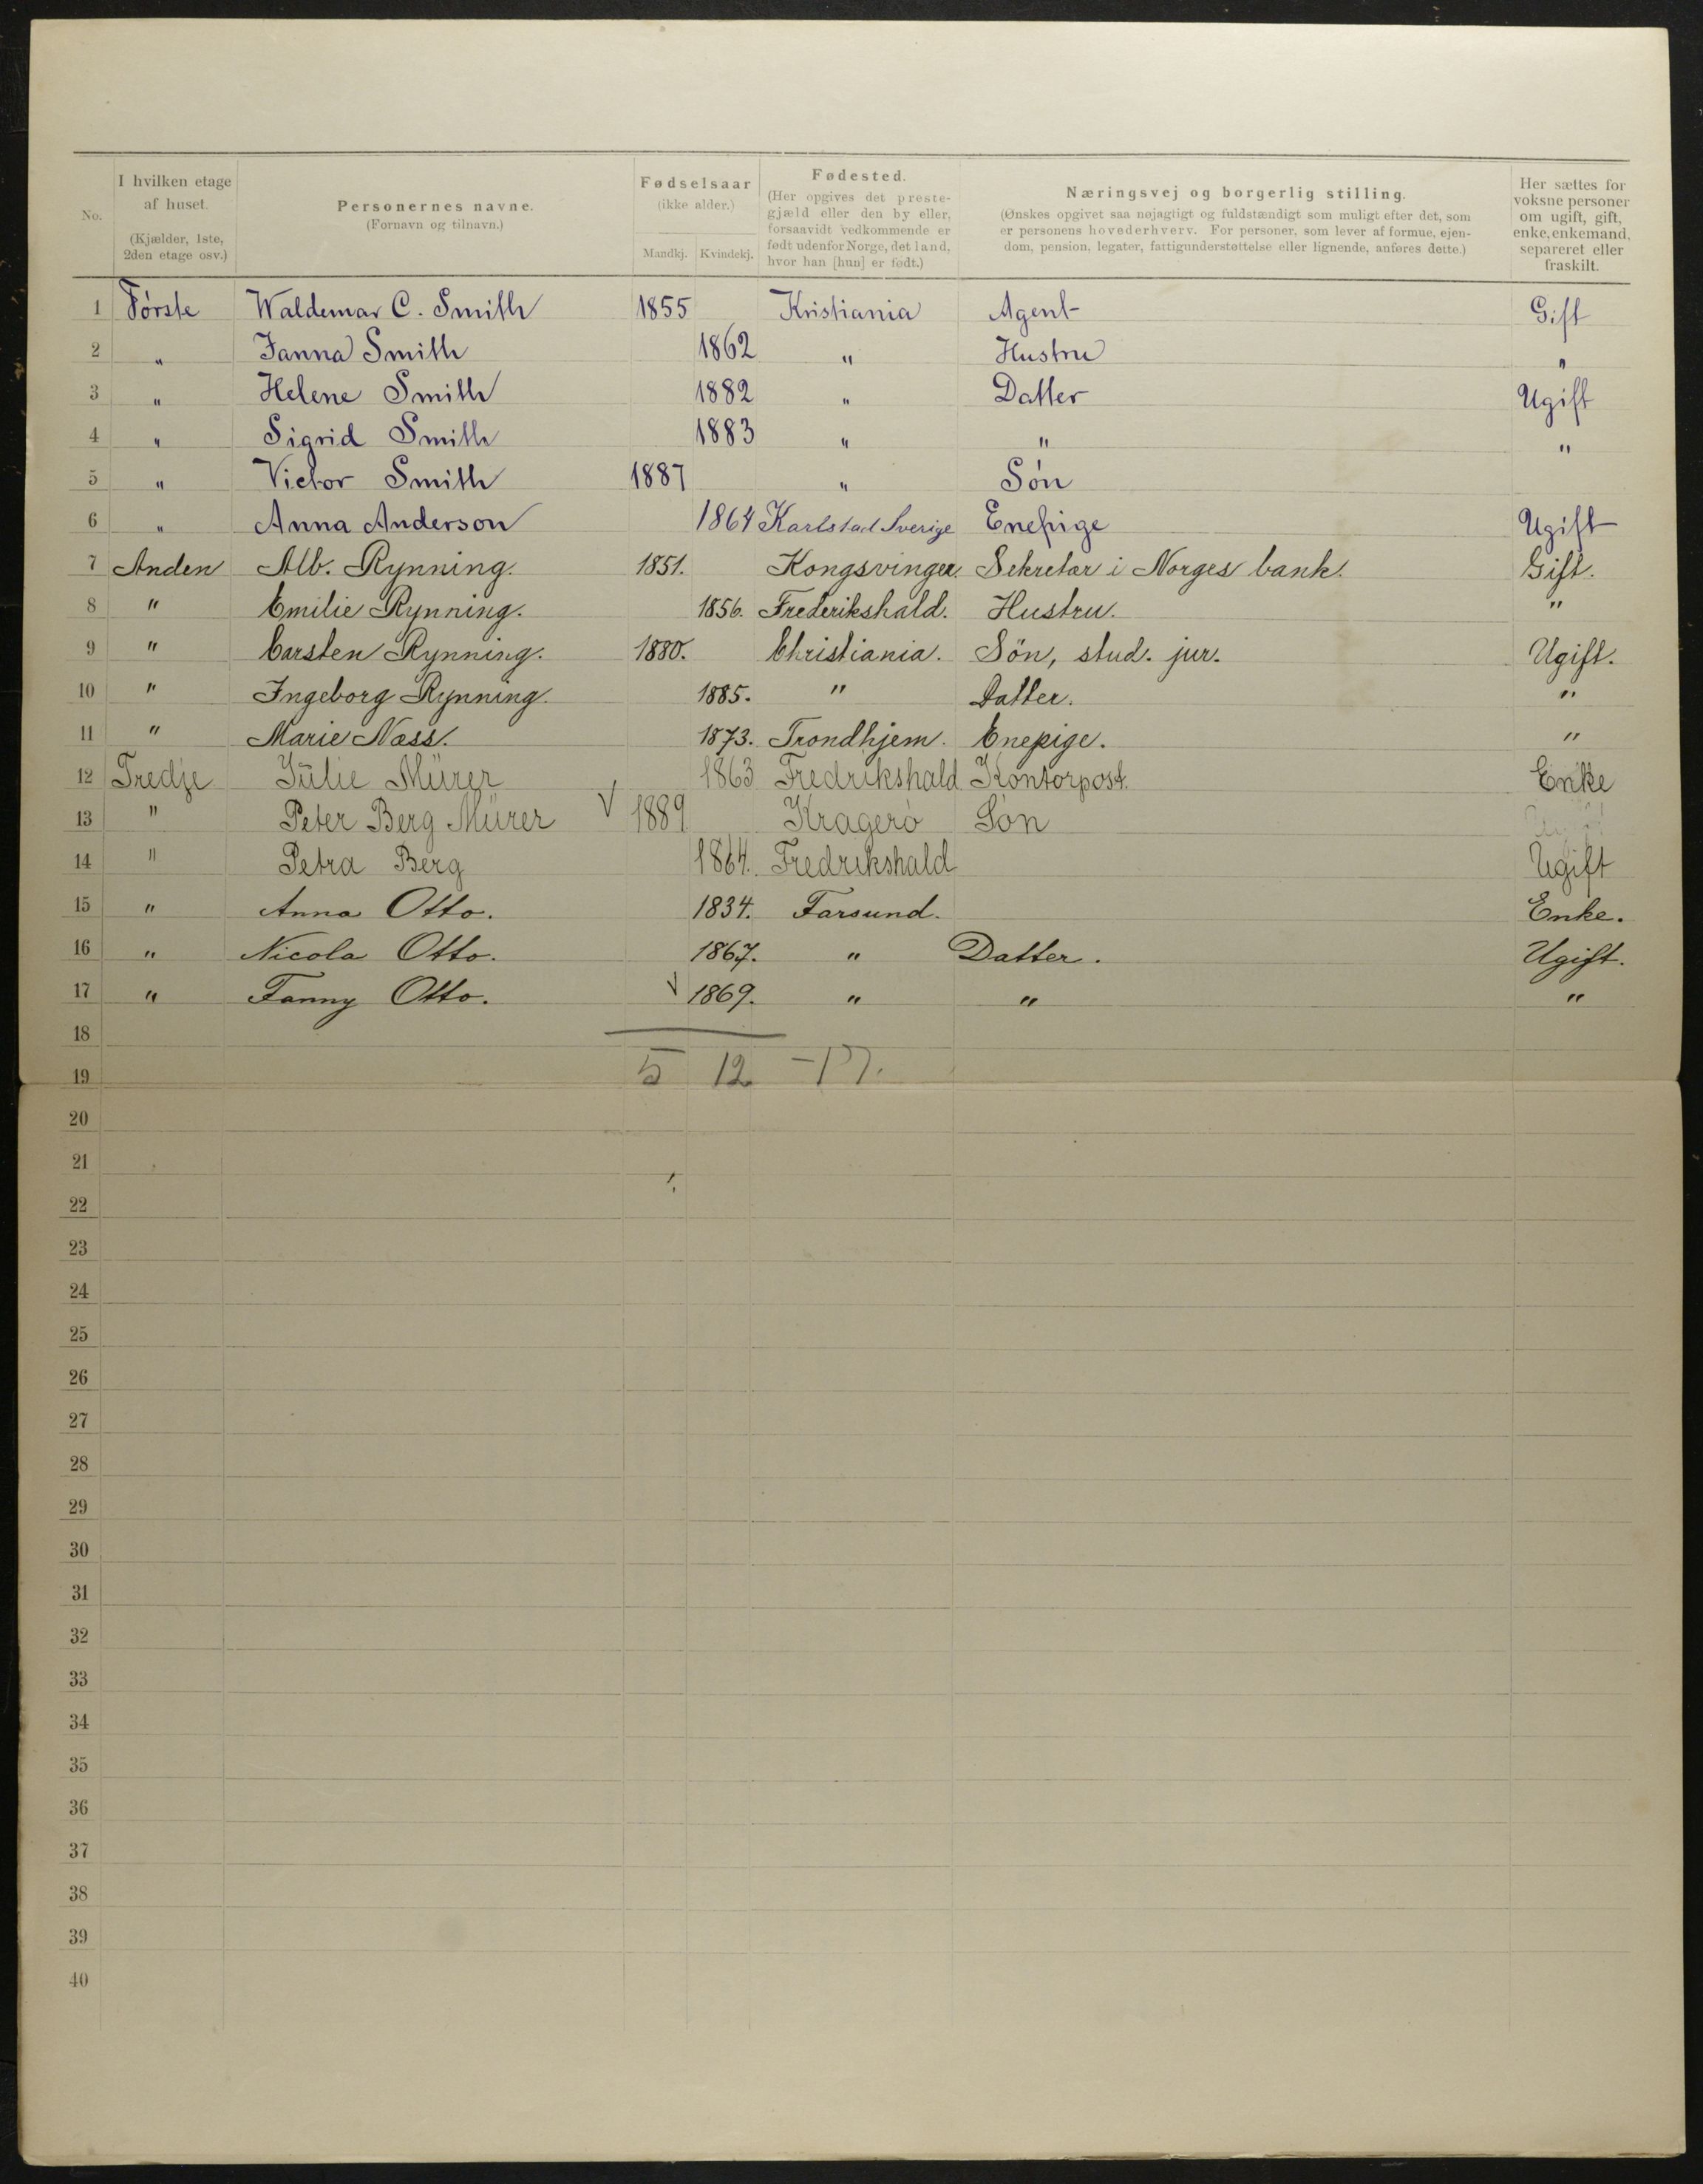 No.
I hvilken etage
af huset.
(Kjælder, 1ste,
2den etage osv.)
Personernes navne.
(Fornavn og tilnavn.)
Fødselsaar
(ikke alder.)
Mandkj. Kvindekj.
Fødested.
(Her opgives det preste-
gjæld eller den by eller,
forsaavidt vedkommende er
født udenfor Norge, det land,
hvor han [hun] er født.)
Næringsvej og borgerlig stilling.
(Ønskes opgivet saa nøjagtigt og fuldstændigt som muligt efter det, som
er personens hovederhverv. For personer, som lever af formue, ejen-
dom, pension, legater, fattigunderstøttelse eller lignende, anføres dette.)
Her sættes for
voksne personer
om ugift, gift,
enke, enkemand,
separeret eller
fraskilt.
1 Første Waldemar C. Smith 1855 Kristiania Agent Gift
2 " Janna Smith 1862 " Hustru "
3 " Helene Smith 1882 " Datter Ugift
4 " Sigrid Smith 1883 " " "
5 " Victor Smith 1887 " Søn
6 " Anna Anderson 1864 Karlstad Sverige Enepige Ugift
7 Anden Alb. Rynning. 1851. Kongsvinger. Sekretær i Norges bank. Gift.
8 " Emilie Rynning. 1856. Frederikshald. Hustru. "
9 " Carsten Rynning. 1880. Christiania. Søn, stud. jur. Ugift.
10 " Ingeborg Rynning. 1885. " Datter. "
11 " Marie Næss. 1873. Trondhjem. Enepige. "
12 Tredje Jülie Mürer 1863 Fredrikshald Kontorpost. Enke
13 " Peter Berg Mürer V 1889 Kragerø Søn
14 " Petra Berg 1864. Fredrikshald Ugift
15 " Anna Otto. 1834. Farsund. Enke.
16 " Nicola Otto. 1867. " Datter. Ugift.
17 " Fanny Otto. V 1869. " " "
18
19 5 12 -17.
20
21
22
23
24
25
26
27
28
29
30
31
32
33
34
35
36
37
38
39
40